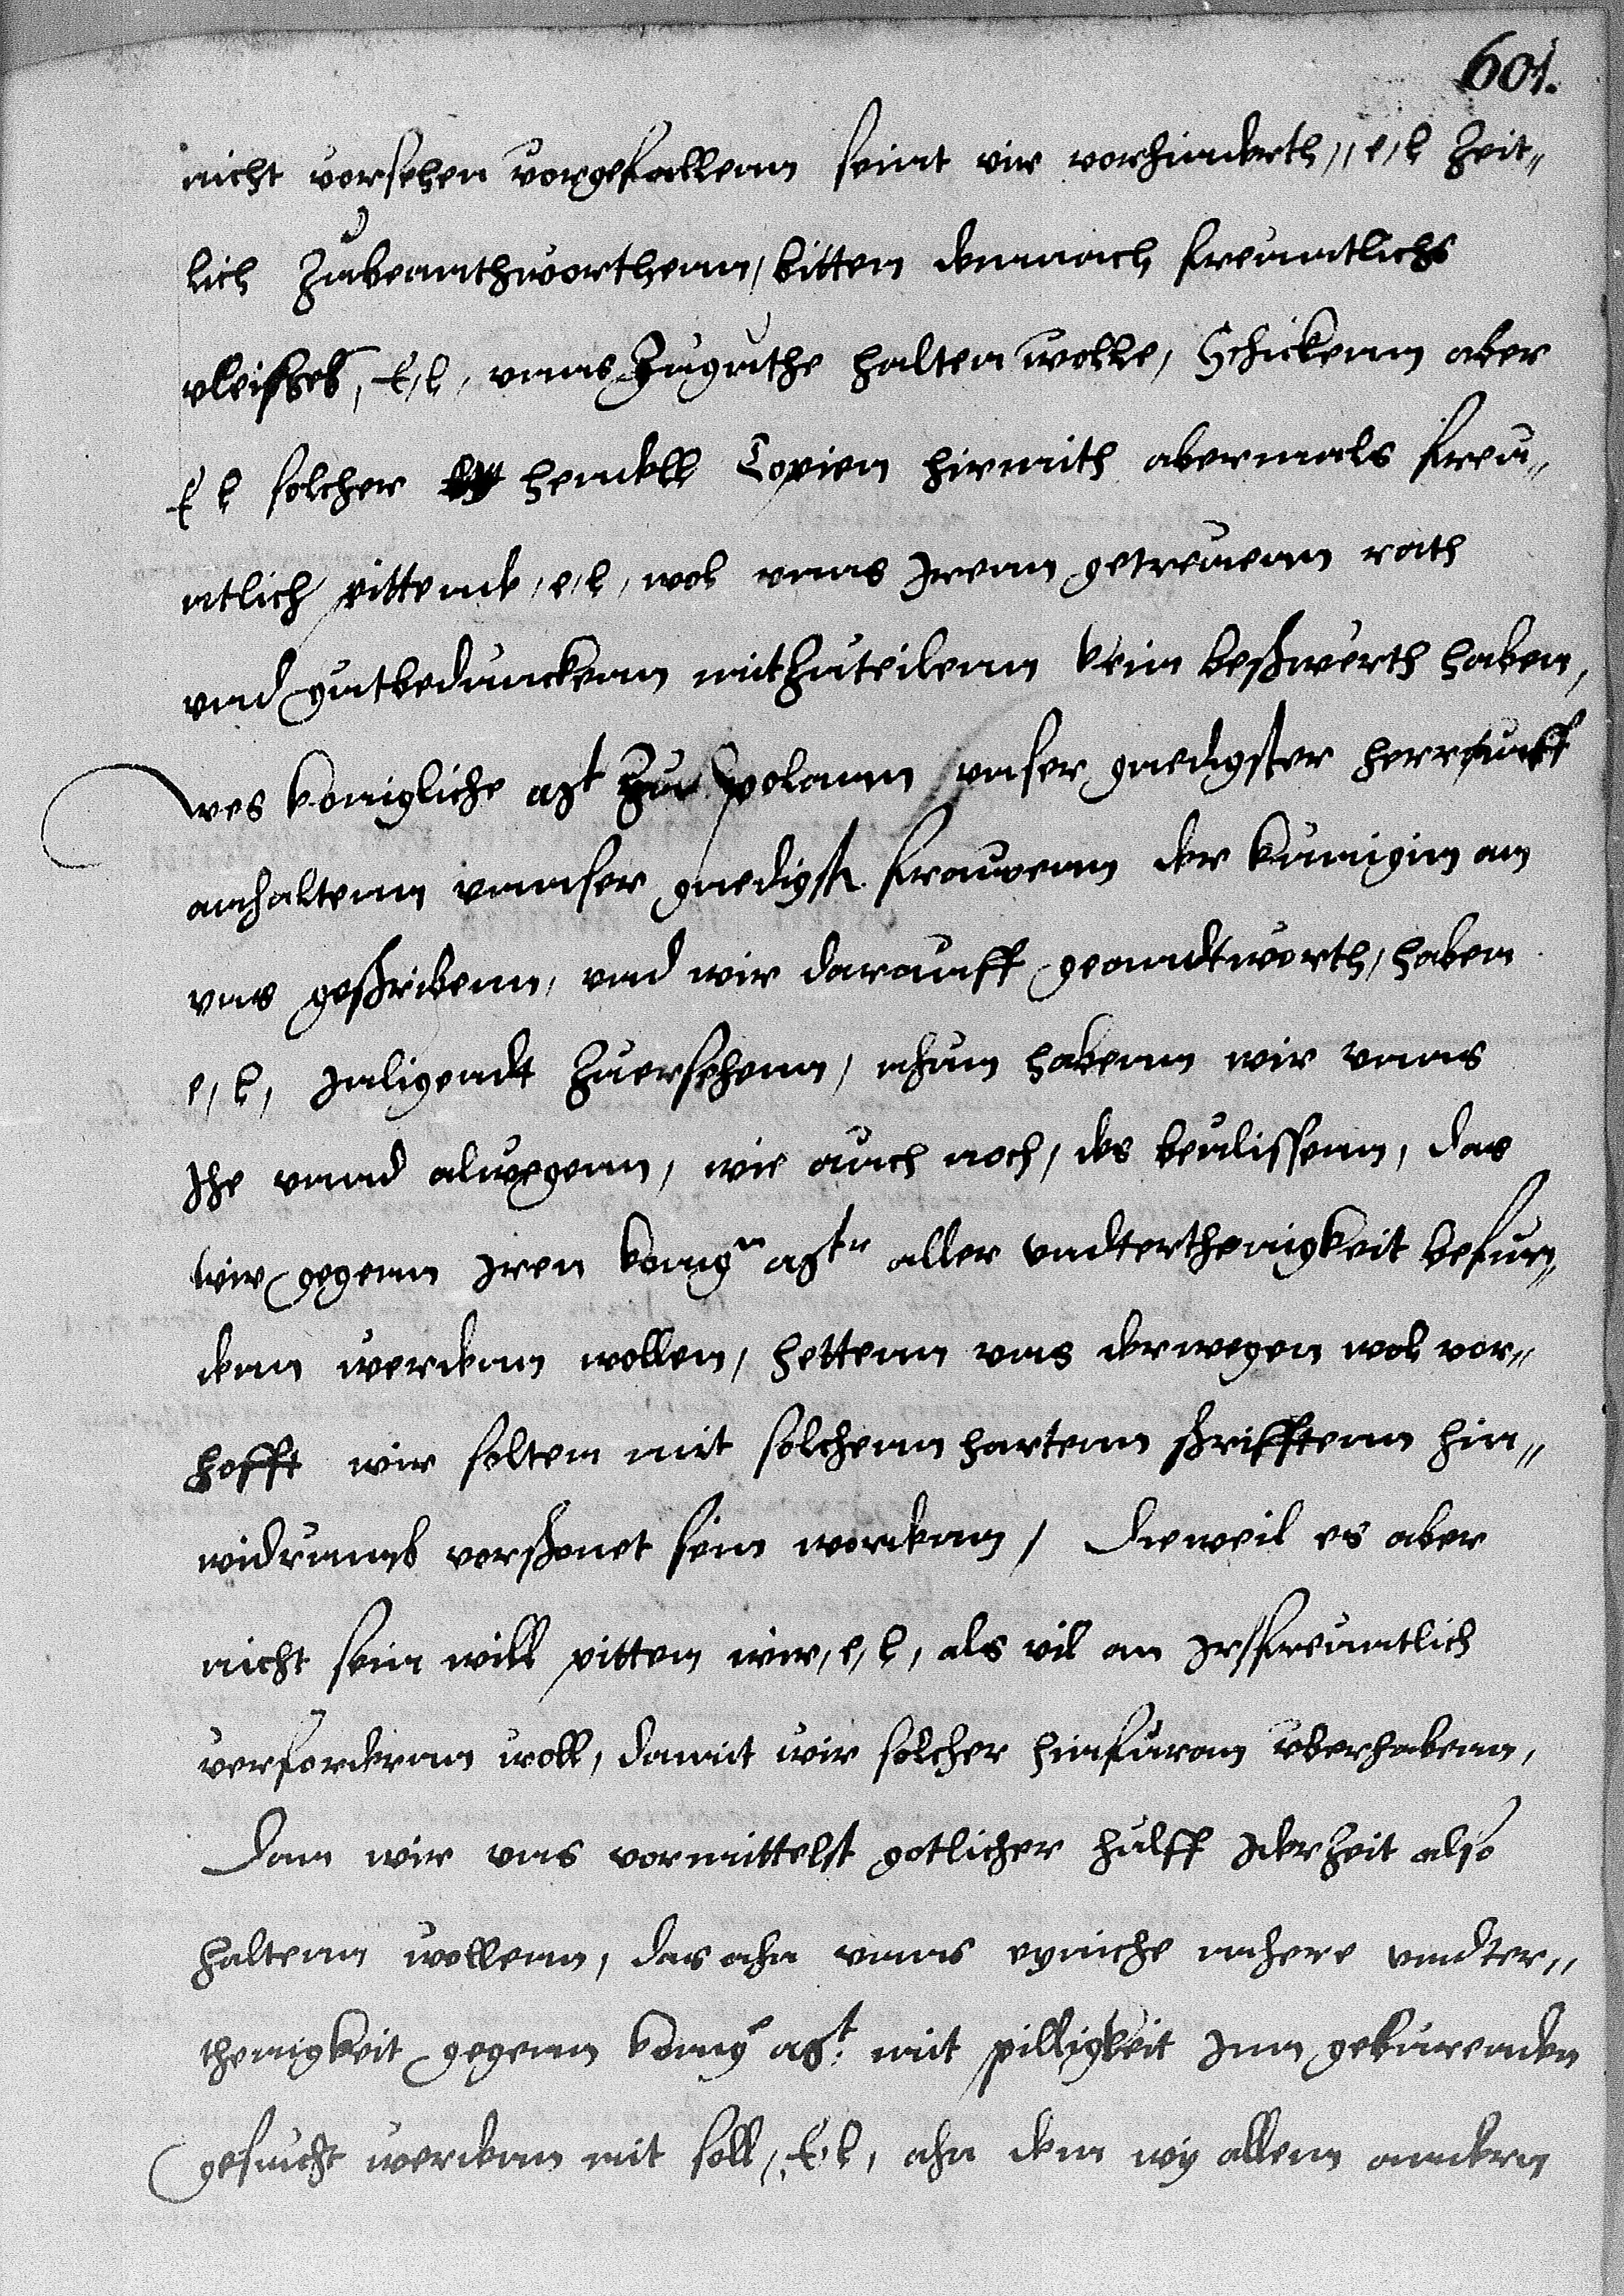 601.
nicht vorsehen vorgefallenn seint wir vorhinderth,, e, l Zeit„
lich Zubeannthworthenn, bitten demnach freuntlichs
vleisses, E, l, vnns Zuguthe halten wolle, Schickenn aber
E l solcher hendell Copien hirmith abermals freu„
ntlich pittende, e, l, wol vnns Jrenn getreuenn rath
vnd gutbedunckenn mitZuteilenn kein beschwerth haben,
wes konigliche Mt Zu polann vnser gnedigster herr vff
anhaltenn vnnser gnedigstn frawenn der kunigin an
vns geschribenn, vnd wir darauff geandtworth, haben
e, l, Jnligendt Zuersehenn, Nhun habenn wir vnns
Jhe vnnd alwegenn, wie auch noch, des bevlissenn, das
wir gegenn Jren konign Mtn aller vndterthenigkeit befun„
denn werdenn wollen, hettenn vns derwegen wol vor„
hofft wir solten mit solchenn hartenn schrifftenn hin„
widrumb vorschonet sein wordenn, Dieweil es aber
nicht sein will pitten wir, e, l, als vil an Jr freuntlich
verfordernn woll, damit wir solcher hinfuran vberhabenn,
Dan wir vns vormittelst gotlicher hulff JderZeit also
haltenn wollenn, das ahn vnns eyniche mhere vndter„
thenigkeit gegenn konige Mt. mit pilligkeit Jnn geburenden
gesucht werdenn nit soll, E l, ahn dem wy allenn anndern